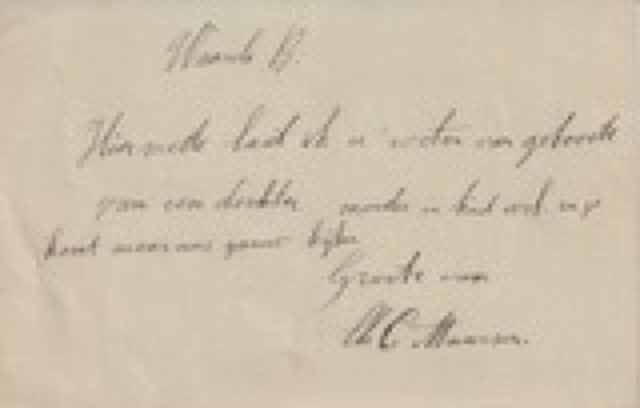 Waarde B.
Hiermede laat ik u weten van geboorte
van een dochter moeder en kind wel. en p
komt maar eens gauw kijken
Groete van
C. Maarsen.